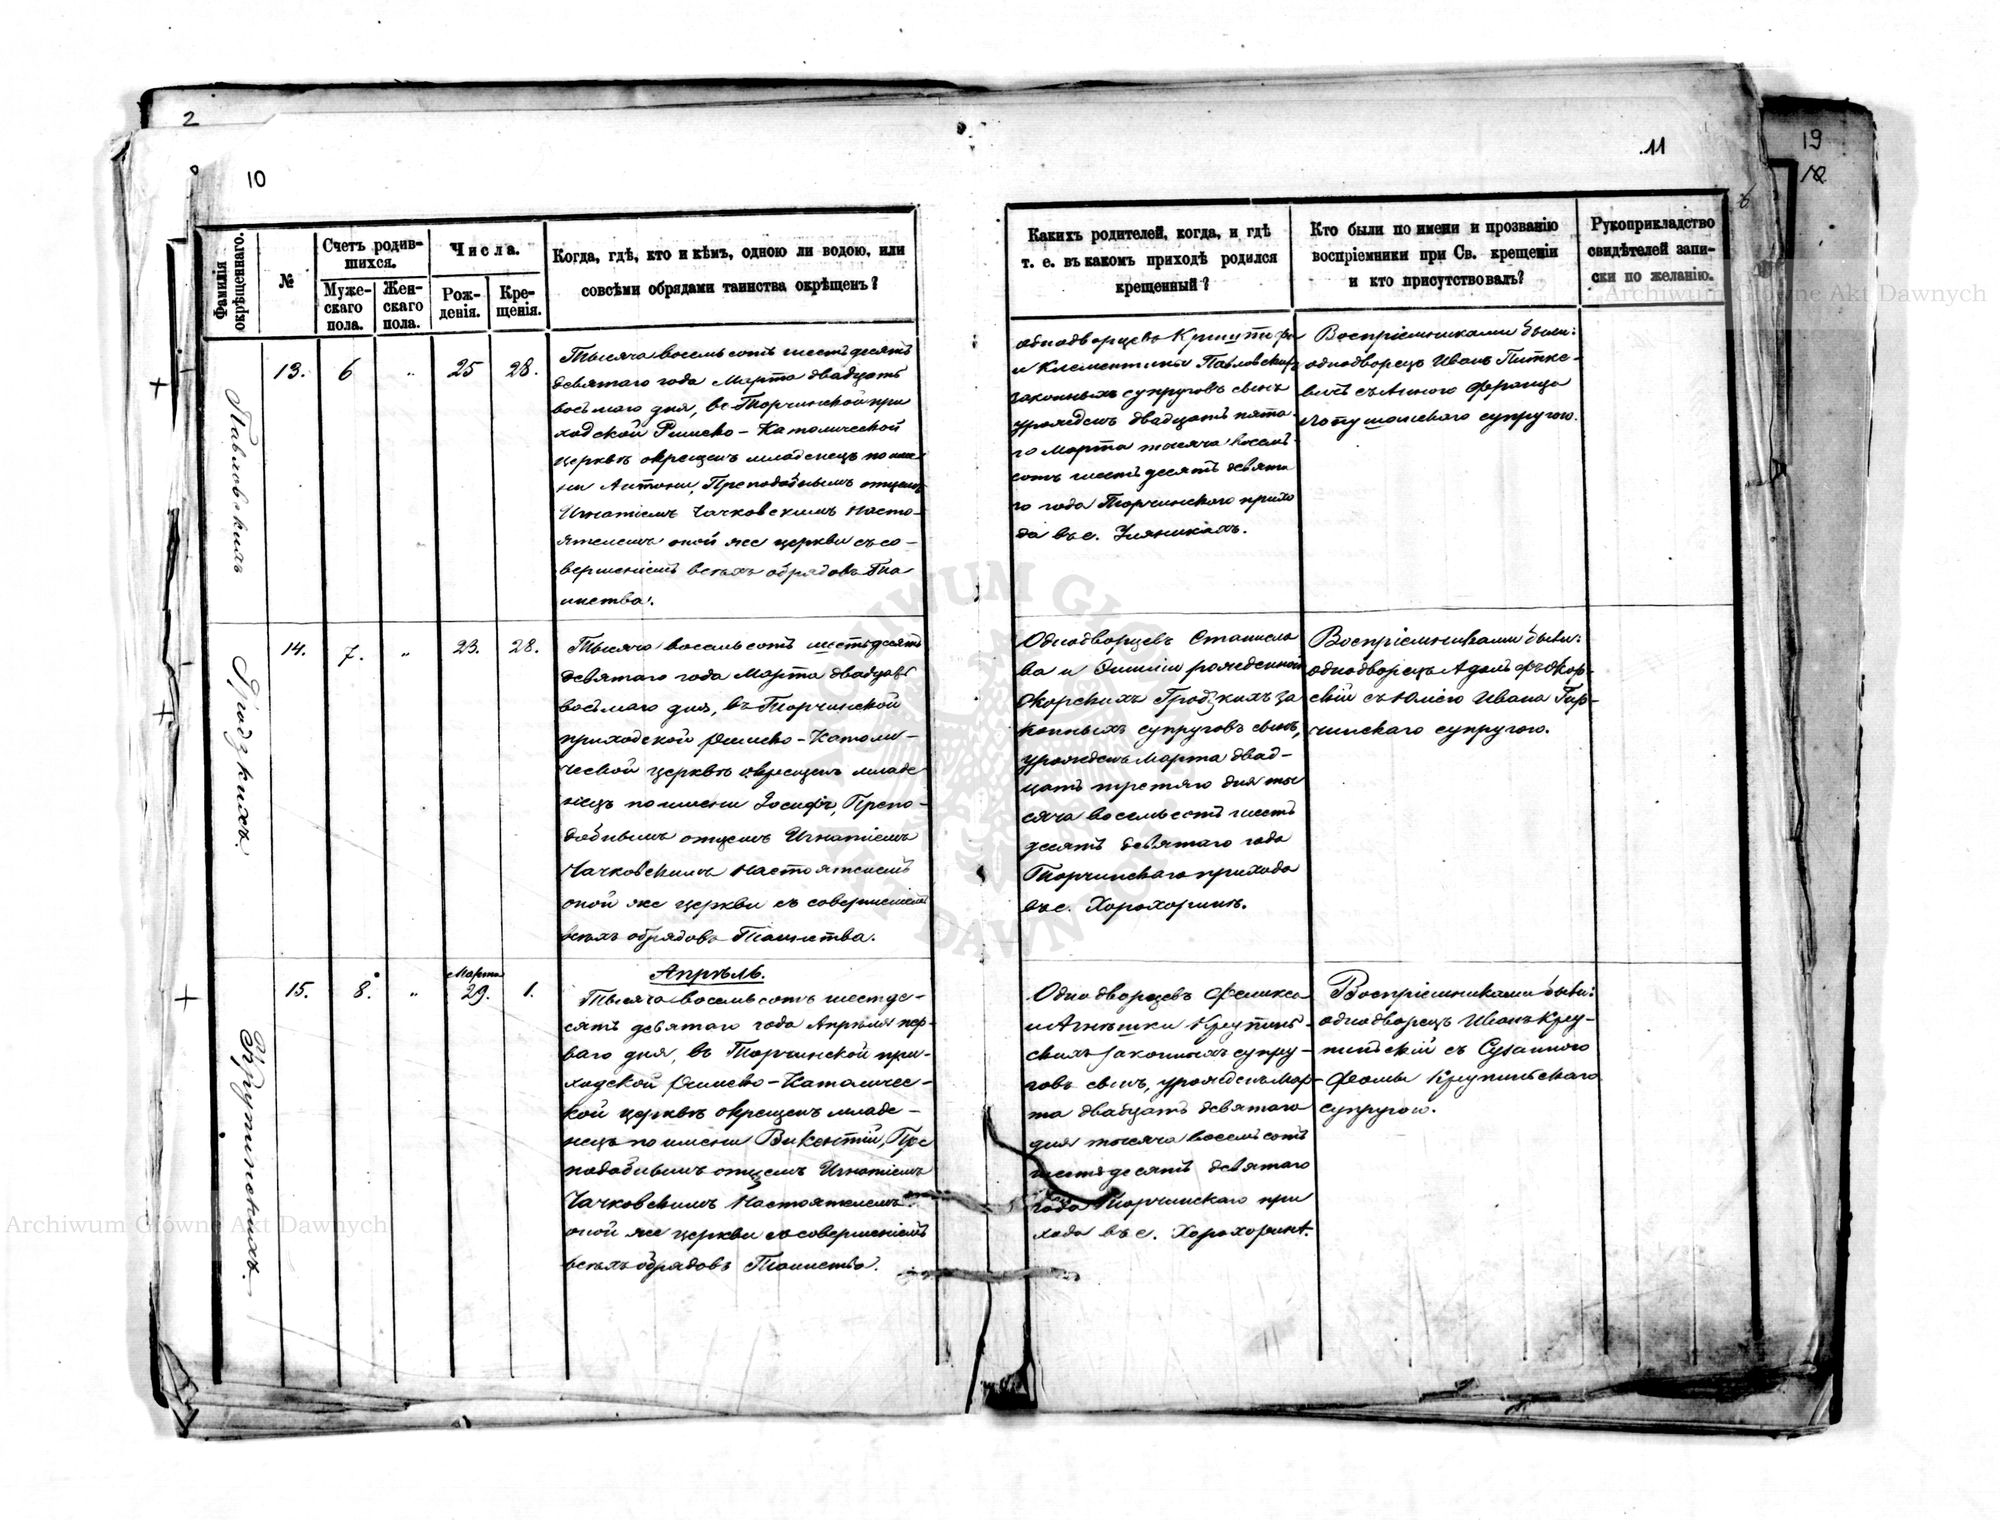 2
10
.11
19
12
Archiwum Główne Akt Dawnych
Фамилія окрѣщеннаго.
№
Счетъ родившихся.
Мужескаго пола.
Женскаго пола.
Числа.
Рожденія.
Крещенія.
Когда, гдѣ, кто и кѣмъ, одною ли водою, или
совсѣми обрядами таинства окрѣщенъ?
Какихъ родителей, когда, и гдѣ
т. е. въ какомъ приходѣ родился
крещенный?
Кто были по имени и прозванію
воспріемники при Св. крещеніи
и кто присутствовалъ?
Рукоприкладство
свидѣтелей запи-
ски по желанію.
Павловскихъ
13. 6 " 25 28.
Тысяча восемь сотъ шестьдесятъ
девятаго года Марта двадцать
восьмаго дня, въ Торчинской при
ходской Римско-Католической
церквѣ окрещенъ младенецъ по име-
ни Антоні, Преподобнымъ отцемъ
Игнатіемъ Чачковскимъ Насто-
ятелемъ оной же церкви съ со-
вершеніемъ всѣхъ обрядовъ Та
инства.
однодворцевъ
и Клементины Павловскихъ
законныхъ супруговъ сынъ
урожденъ двадцать пята-
го Марта тысяча восемь
сотъ шестьдесятъ девята
го года Торчинскаго прихо
да въ с.
Воспріемниками были:
однодворецъ Иванъ Питке-
вичъ съ Анною Франца
супругою.
Гродзкихъ.
14. 7. " 23. 28.
Тысяча восемь сотъ шестьдесятъ
девятаго года Марта двадцать
восьмаго дня, въ Торчинской
приходской Римско-Католи-
ческой церквѣ окрещенъ младе
нецъ по имени Іосифъ, Препо-
добнымъ отцемъ Игнатіемъ
Чачковскимъ Настоятелемъ
оной же церкви съ совершеніемъ
всѣхъ обрядовъ Таинства.
Однодворцевъ Станисла
ва и Эмиліи рожденной
Окорскихъ Гродзкихъ за
конныхъ супруговъ сынъ,
урожденъ Марта двад-
цать третяго дня ты
сяча восемь сотъ шесть
десятъ девятаго года
Торчинскаго прихода
въ с. Хорохоринѣ.
Воспріемниками были:
однодворецъ Адольфъ Окор-
скій съ Юліею Ивана Тар-
чинскаго супругою.
Крупинскихъ.
15. 8. " Марта 29. 1.
Апрѣль.
Тысяча восемь сотъ шестьде-
сятъ девятаго года Апрѣля пер-
ваго дня, въ Торчинской при-
ходской Римско-Католичес-
кой церквѣ окрещенъ младе-
нецъ по имени Викентій, Пре
подобнымъ отцемъ Игнатіемъ
Чачковскимъ Настоятелемъ
оной же церкви съ совершеніемъ
всѣхъ обрядовъ Таинства.
Однодворцевъ Феликса
и Агнѣшки Крупинь-
скихъ законныхъ супру-
говъ сынъ, урожденъ Мар-
та двадцать девятаго
дня тысяча восемь сотъ
шестьдесятъ девятаго
года Торчинскаго при
хода въ с. Хорохоринѣ.
Воспріемниками были:
однодворецъ Иванъ Кру-
пинскій съ Сузанною
Фомы Крупинскаго
супругою.
Archiwum Główne Akt Dawnych